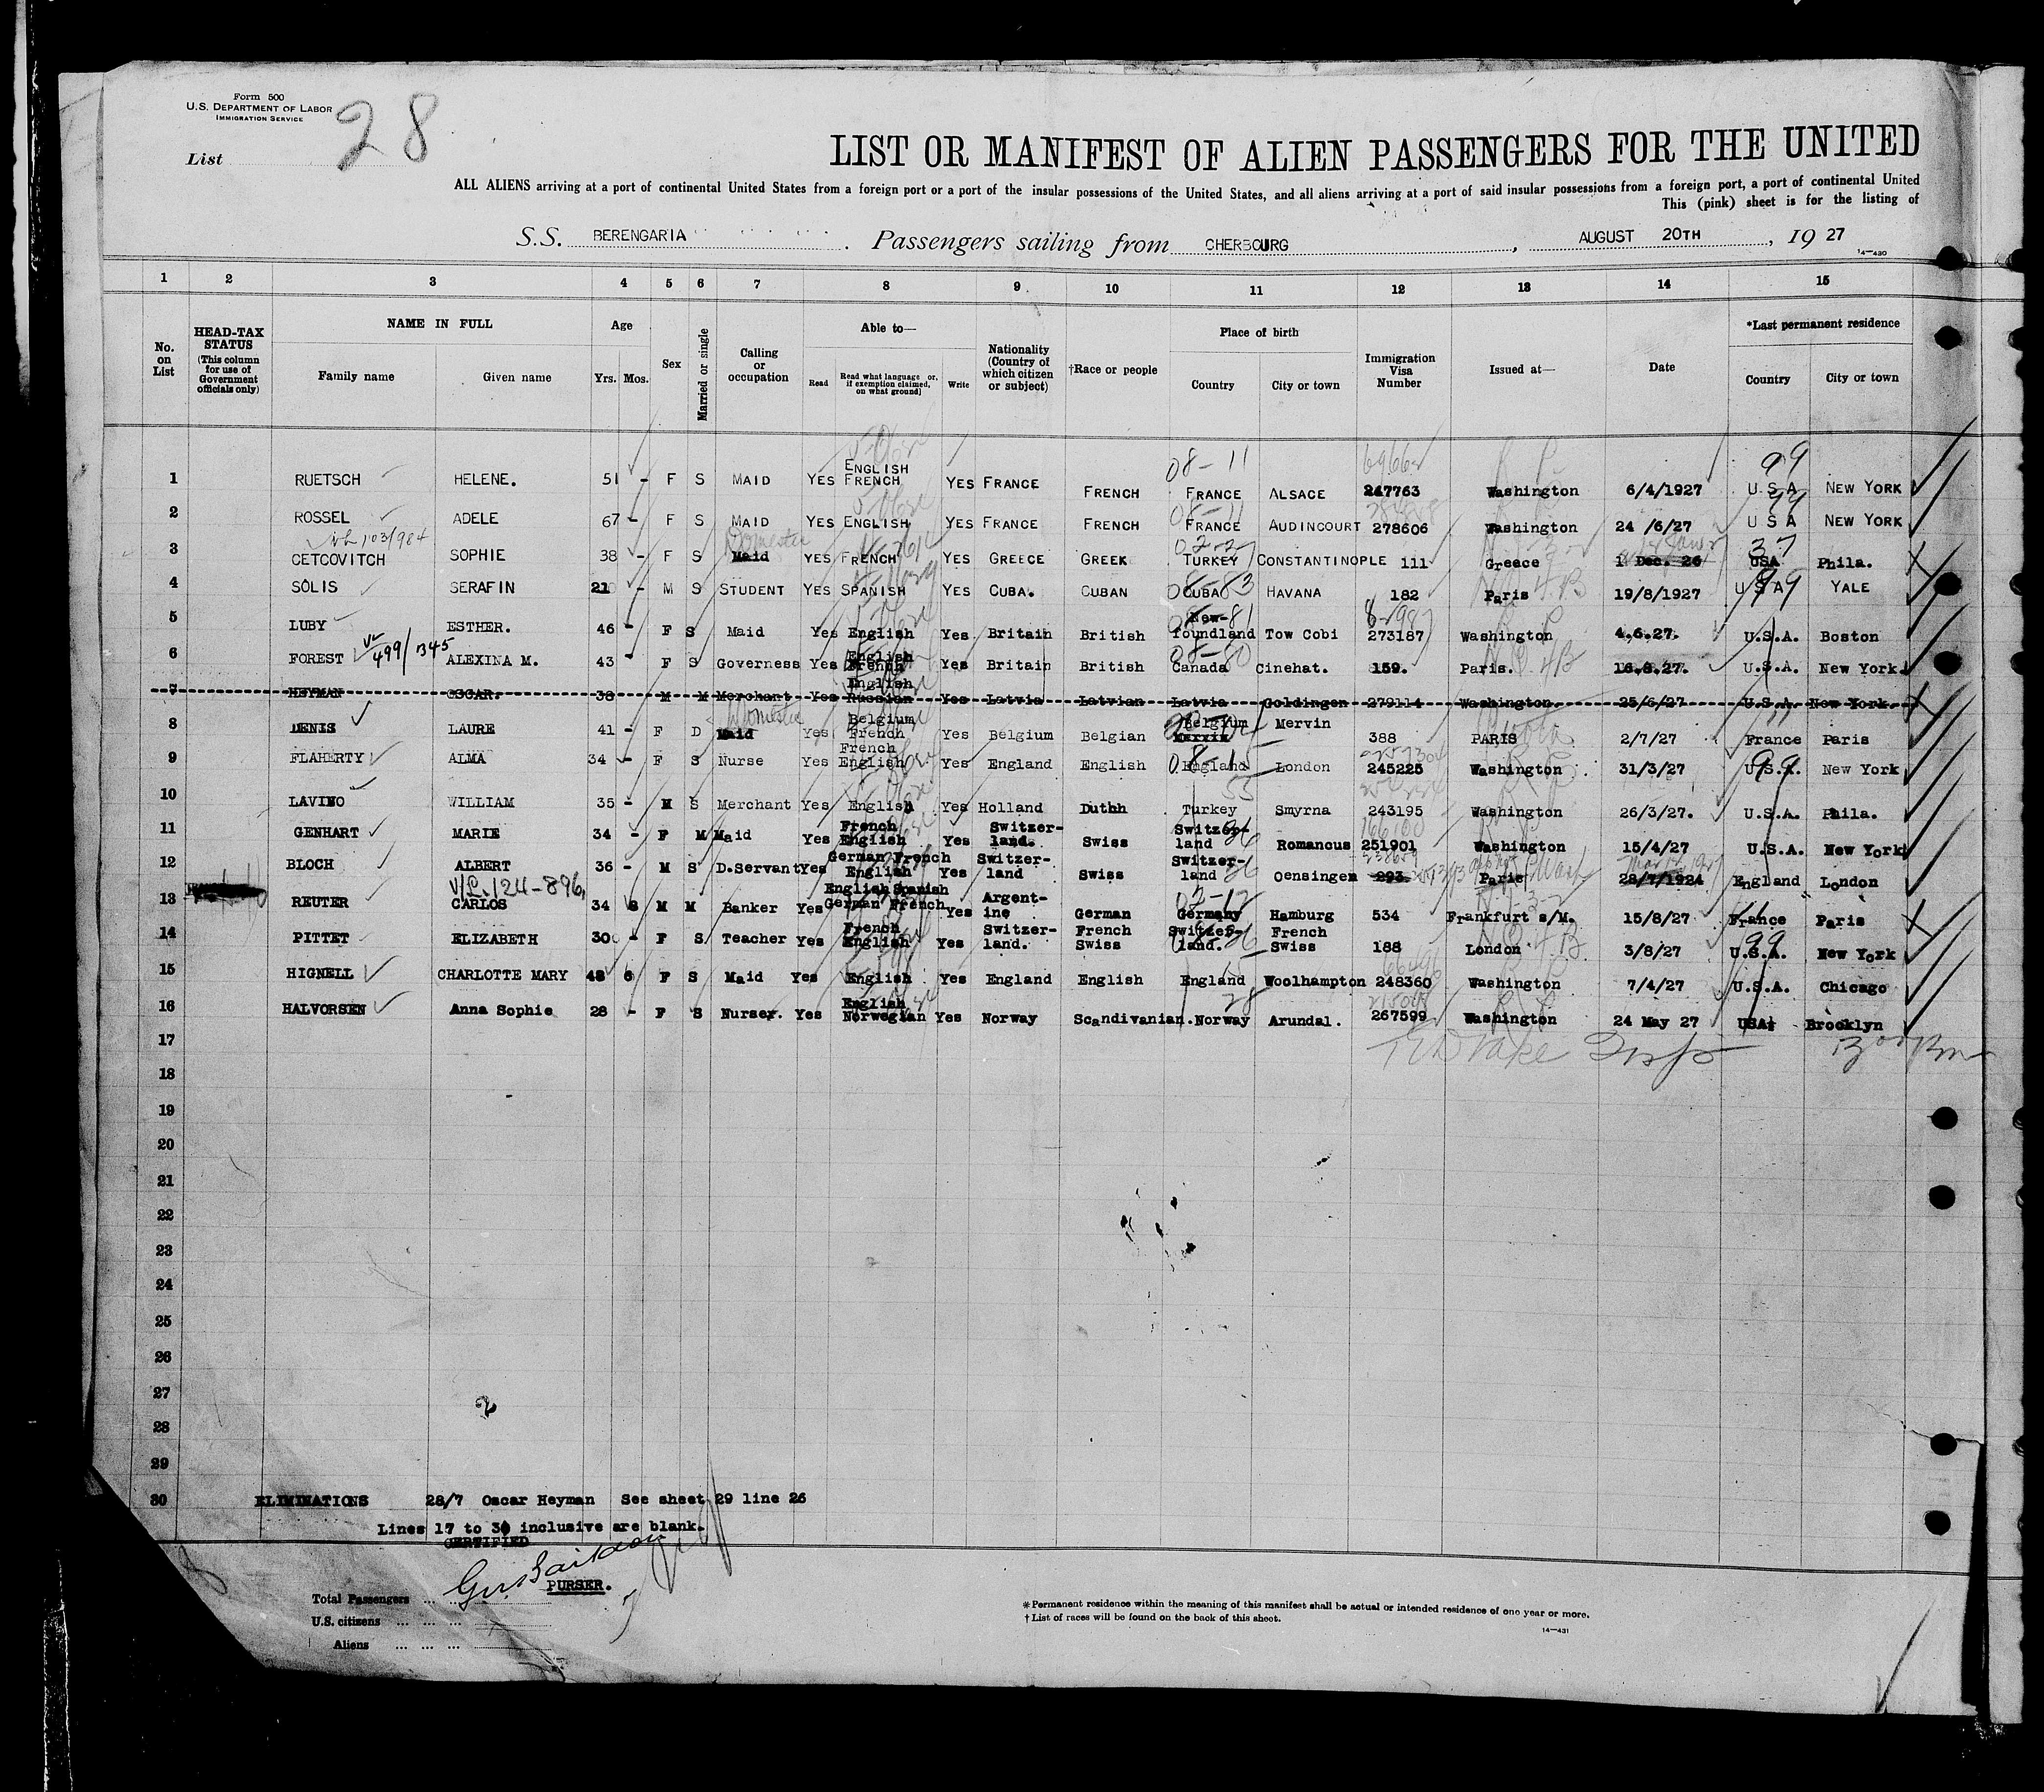 Form 500
U.S. DEPARTMENT OF LABOR
IMMIGRATION SERVICE
List 28
LIST OR MANIFEST OF ALIEN PASSENGERS FOR THE UNITED
ALL ALIENS arriving at a port of continental United States from a foreign port or a port of the insular possessions of the United States, and all aliens arriving at a port of said insular possessions from a foreign port, a port of continental United
This (pink) sheet is for the listing of
S.S. BERENGARIA. Passengers sailing from CHERBOURG, AUGUST 20TH, 19 27
14—430
1 2 3 4 5 6 7 8 9 10 11 12 13 14 15
No. on List
HEAD-TAX STATUS (This column for use of Government officials only)
NAME IN FULL Family name Given name
Age Yrs. Mos.
Sex
Married or single
Calling or occupation
Able to— Read Read what language or, if exemption claimed, on what ground Write
Nationality (Country of which citizen or subject)
†Race or people
Place of birth Country City or town
Immigration Visa Number
Issued at—
Date
*Last permanent residence Country City or town
1 RUETSCH HELENE. 51 - F S MAID YES ENGLISH FRENCH YES FRANCE FRENCH 08-11 FRANCE ALSACE 247763 Washington 6/4/1927 99 U S A NEW YORK
2 ROSSEL ADELE 67 - F S MAID YES ENGLISH YES FRANCE FRENCH FRANCE AUDINCOURT 278606 Washington 24 /6/27 U S A NEW YORK
3 CETCOVITCH SOPHIE 38 - F S Maid YES FRENCH YES GREECE GREEK TURKEY CONSTANTINOPLE 111 Greece 1 Dec. 26 37 USA Phila.
4 SOLIS SERAFIN 21 - M S STUDENT YES SPANISH YES CUBA. CUBAN CUBA HAVANA 182 Paris 19/8/1927 U S A YALE
5 LUBY ESTHER. 46 - F S Maid Yes English Yes. Britain British New-foundland Tow Cobi 273187 Washington 4.6.27. U.S.A. Boston
6 FOREST ALEXINA M. 43 - F S Governess Yes English French Yes Britain British Canada Cinehat. 159. Paris. 16.8.27. U.S.A. New York.
7 HEYMAN OSCAR. 38 M M Merchant Yes English Russian Yes Latvia Latvian Latvia Goldingen 279114 Washington 25/6/27 U.S.A. New York.
8 DENIS LAURE 41 - F D Maid Yes Belgium French Yes Belgium Belgian Belgium Mervin 388 PARIS 2/7/27 France Paris
9 FLAHERTY ALMA 34 - F S Nurse Yes French English Yes England English England London 245225 Washington 31/3/27 U.S.A. New York
10 LAVINO WILLIAM 35 - M S Merchant Yes English Yes Holland Duthh Turkey Smyrna 243195 Washington 26/3/27. U.S.A. Phila.
11 GENHART MARIE 34 - F M Maid Yes French English Yes Switzer-land. Swiss Switzer-land Romancus 251901 Washington 15/4/27 U.S.A. New York
12 BLOCH ALBERT 36 - M S D.Servant Yes German French English Yes Switzer-land Swiss Switzer-land Oensingen 293. Paris 28/7/1924 England London
V/L. 124-896,
13 REUTER CARLOS 34 8 M M Banker Yes English Spanish German French Yes Argent-ine German Germany Hamburg 534 Frankfurt s/M. 15/8/27 France Paris
14 PITTET ELIZABETH 30 - F S Teacher Yes French English Yes Switzer-land. French Swiss Switzer-land. French Swiss 188 London 3/8/27 U.S.A. New York
15 HIGNELL CHARLOTTE MARY 48 6 F S Maid Yes English Yes England English England Woolhampton 248360 Washington 7/4/27 U.S.A. Chicago
16 HALVORSEN Anna Sophie 28 - F S Nurser. Yes English Norwegian Yes Norway Scandivanian. Norway Arundal. 267599 Washington 24 May 27 USA Brooklyn
17
18
19
20
21
22
23
24
25
26
27
28
29
30 ELIMINATIONS 28/7 Oscar Heyman See sheet 29 line 26
Lines 17 to 30 inclusive are blank.
CERTIFIED
PURSER.
Total Passengers
U.S. citizens
Aliens
*Permanent residence within the meaning of this manifest shall be actual or intended residence of one year or more.
†List of races will be found on the back of this sheet.
14—431